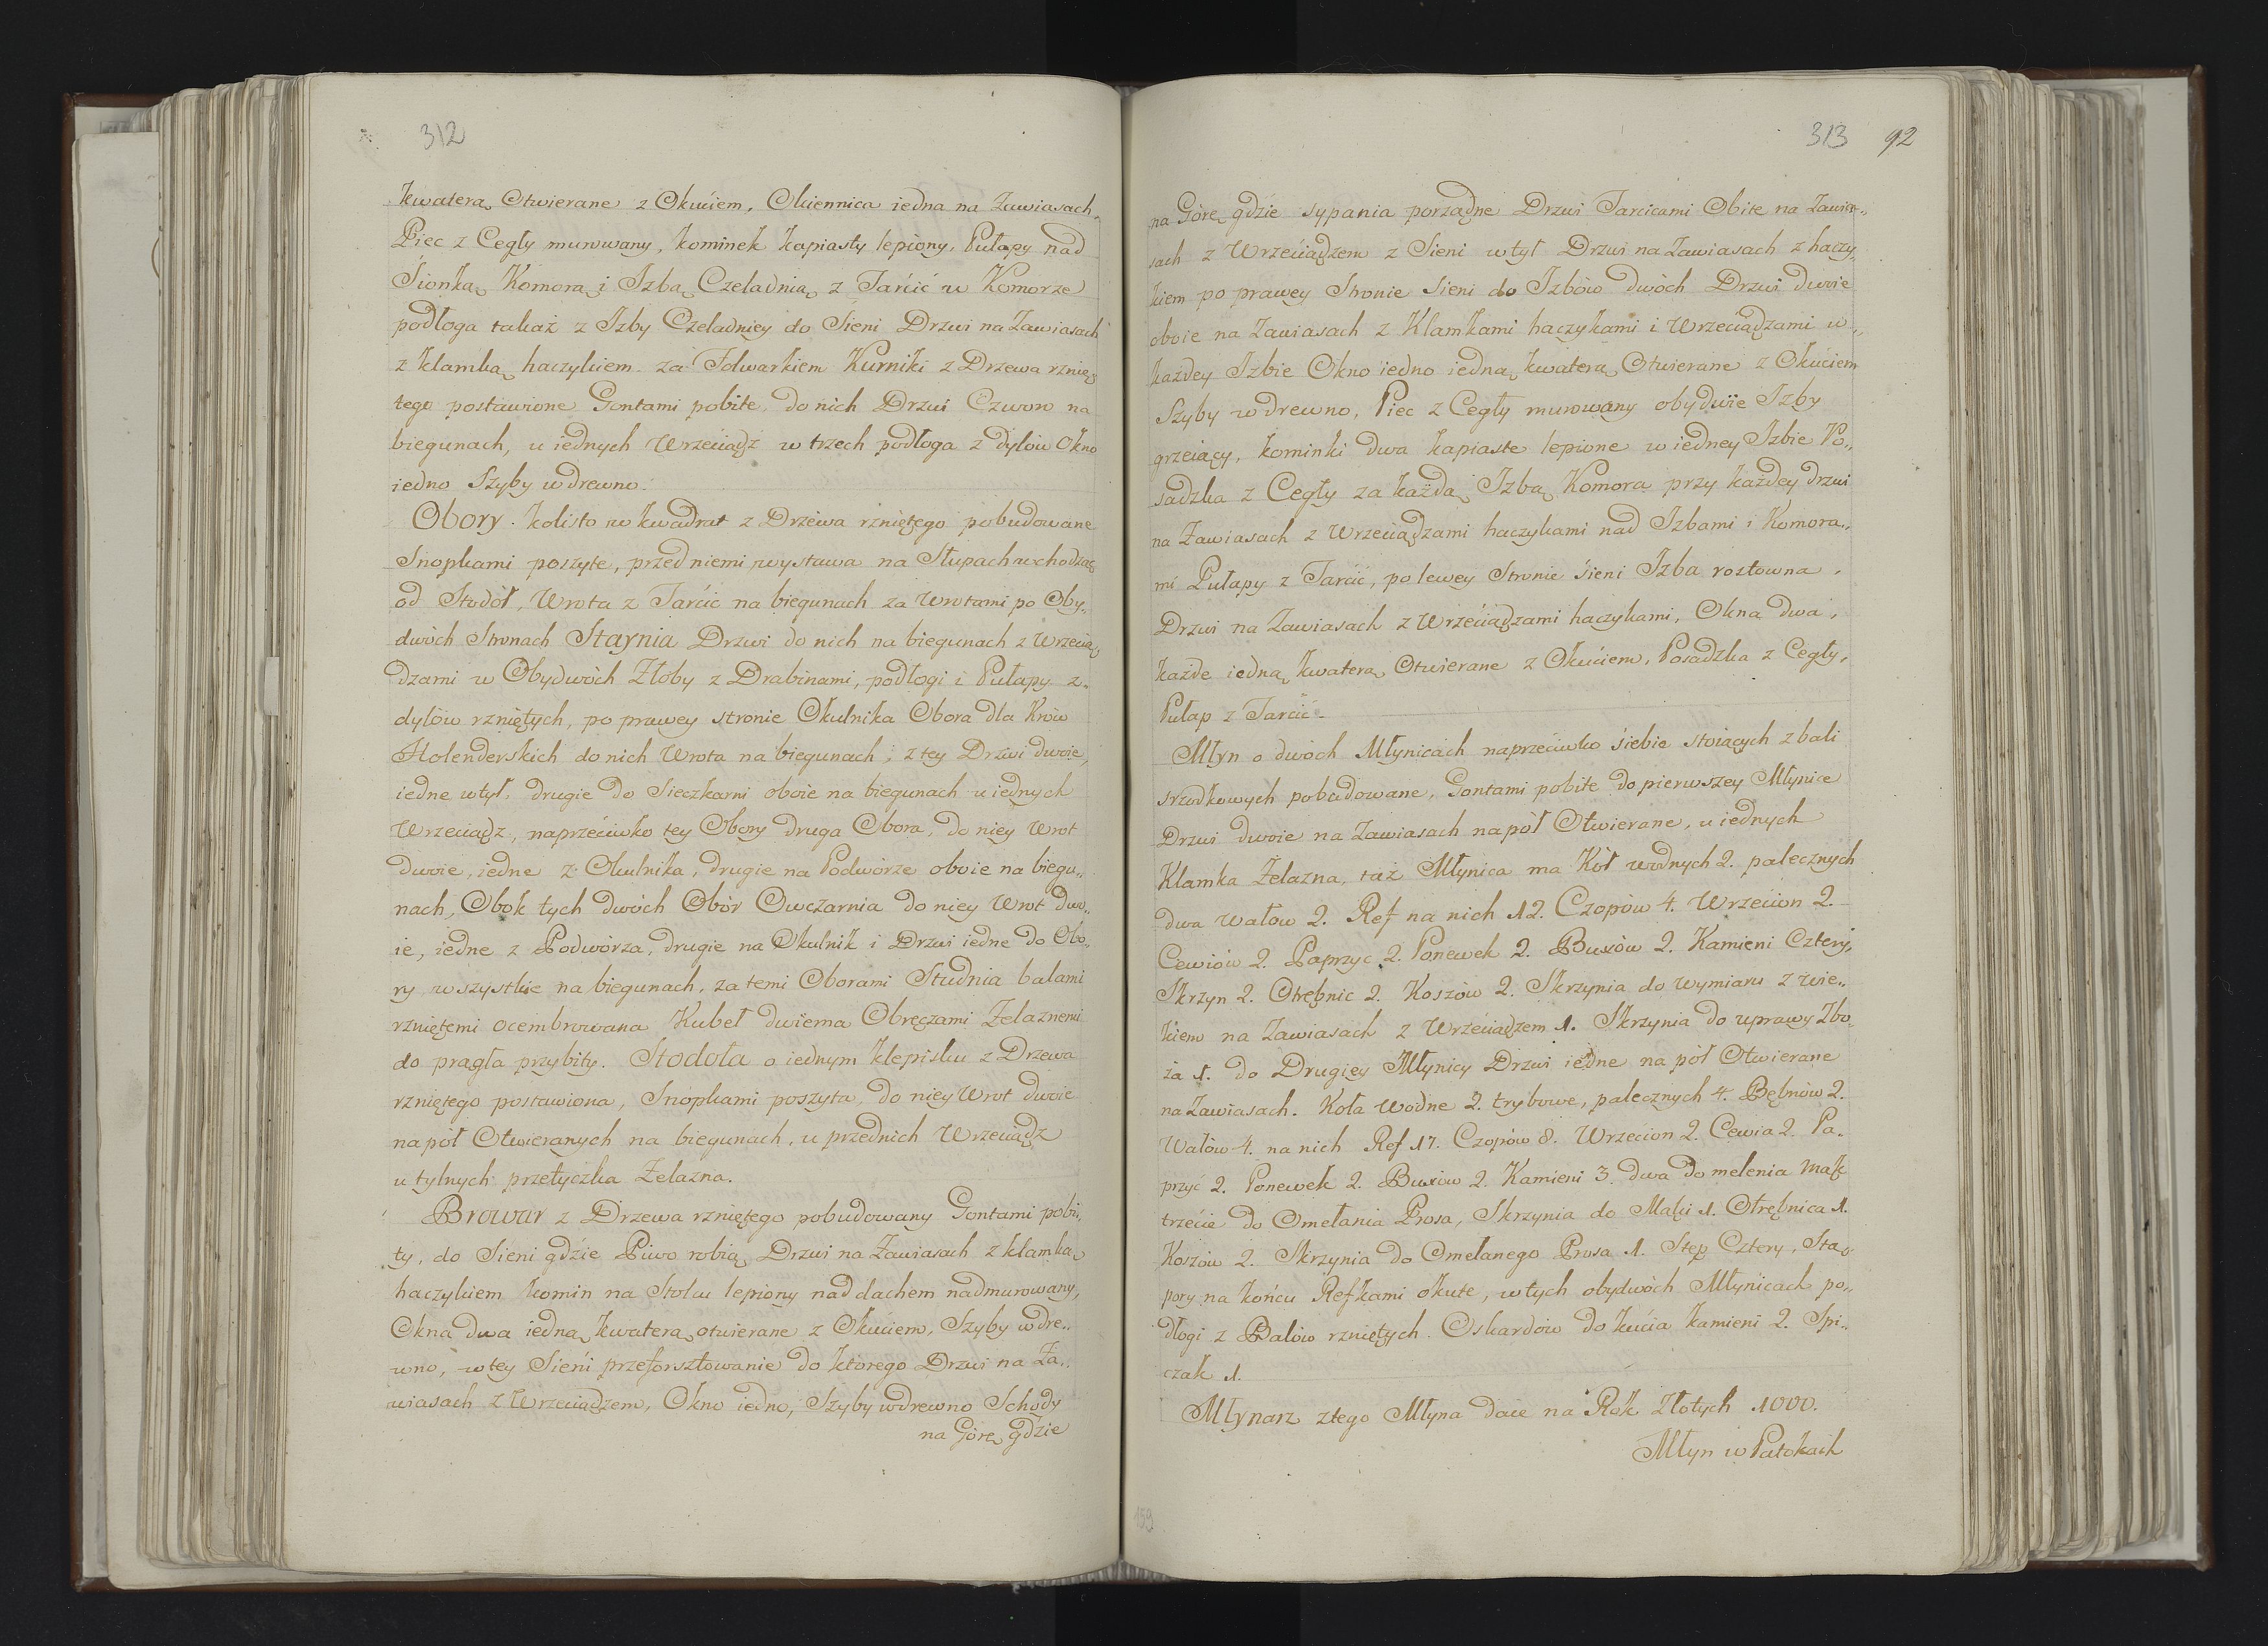 312
kwaterą Otwierane z Okuciem, Okiennica iedna na Zawiasach,
Piec z Cegły murowany, kominek kapiasty lepiony, Pułapy nad
Sionką, Komorą i Izbą Czeladnią z Tarcic w Komorze
podłoga takaż z Izby Czeladniey do Sieni Drzwi na Zawiasach
z klamką haczykiem za Folwarkiem Kurniki z Drzewa rznię,
tego postawione Gontami pobite, do nich Drzwi Czworo na
biegunach, u iednych Wrzeciądz w trzech podłoga z dylów Okno
iedno Szyby w drewno.
Obory. kolisto w kwadrat z Drzewa rzniętego pobudowane
Snopkami poszyte, przed niemi wystawa na Słupach wchodząc
od Stodół, Wrota z Tarcic na biegunach za Wrotami po Oby,,
dwóch Stronach Staynia Drzwi do nich na biegunach z Wrzecią,
dzami w Obydwóch Żłoby z Drabinami, podłogi i Pułapy z,,
dylów rzniętych, po prawey stronie Okulnika Obora dla Krów
Holenderskich do nich Wrota na biegunach, z tey Drzwi dwoie,
iedne w tył, drugie do Sieczkarni oboie na biegunach u iednych
Wrzeciądz, naprzeciwko tey Obory druga Obora, do niey Wrot
dwoie, iedne z Okulnika, drugie na Podwórze oboie na biegu,,
nach, Obok tych dwóch Obór Owczarnia do niey Wrot dwo,,
ie, iedne z Podwórza, drugie na Okulnik i Drzwi iedne do Obo,,
ry wszystkie na biegunach, za temi Oborami Studnia balami
rzniętemi ocembrowana Kubeł dwiema Obręczami Żelaznemi
do prągła przybity. Stodoła o iednym klepisku z Drzewa
rzniętego postawiona, Snopkami poszyta, do niey Wrot dwoie
na pół Otwieranych na biegunach, u przednich Wrzeciądz
u tylnych przetyczka Żelazna.
Browar z Drzewa rzniętego pobudowany Gontami pobi,,
ty, do Sieni gdzie Piwo robią Drzwi na Zawiasach z klamką
haczykiem komin na Stolcu lepiony nad dachem nadmurowany,
Okna dwa iedną kwaterą otwierane z Okuciem, Szyby w dre,,
wno, w tey Sieni przeforsztowanie do którego Drzwi na Za,,
wiasach z Wrzeciądzem, Okno iedno, Szyby w drewno Schody
na Górę gdzie
313 92
na Górę gdzie sypania porządne Drzwi Tarcicami Obite na Zawia,,
sach z Wrzeciądzem z Sieni w tył Drzwi na Zawiasach z haczy,
kiem po prawey Stronie Sieni do Izbów dwóch Drzwi dwoie
oboie na Zawiasach z Klamkami haczykami i Wrzeciądzami w,,
każdey Izbie Okno iedno iedną kwaterą Otwierane z Okuciem
Szyby w drewno, Piec z Cegły murowany obydwie Izby
grzeiący, kominki dwa kapiaste lepione w iedney Izbie Po,,
sadzka z Cegły za każdą Izbą Komora przy każdey drzwi
na Zawiasach z Wrzeciądzami haczykami nad Izbami i Komora,,
mi Pułapy z Tarcic, po lewey Stronie Sieni Izba rostowna,
Drzwi na Zawiasach z Wrzeciądzami haczykami, Okna dwa,
każde iedną kwaterą Otwierane z Okuciem, Posadzka z Cegły,
Pułap z Tarcic.
Młyn o dwóch Młynicach naprzeciwko siebie stoiących z bali
srzodkowych pobudowane, Gontami pobite do pierwszey Młynice
Drzwi dwoie na Zawiasach na pół Otwierane, u iednych
Klamka Żelazna, taż Młynica ma Kół wodnych 2. palecznych
dwa wałow 2. Ref na nich 12. Czopów 4. Wrzecion 2.
Cewiów 2. Paprzyc 2. Ponewek 2. Buxów 2. Kamieni Cztery,
Skrzyn 2. Otrębnic 2. Koszów 2. Skrzynia do wymiaru z wie,,
kiem na Zawiasach z Wrzeciądzem 1. Skrzynia do uprawy Zbo,
ża 1. do Drugiey Młynicy Drzwi iedne na pół Otwierane
na Zawiasach. Koła wodne 2. trybowe, palecznych 4. Bębnów 2.
Wałów 4. na nich Ref 17. Czopów 8. Wrzecion 2. Cewia 2. Pa,
przyc 2. Ponewek 2. Buxów 2. Kamieni 3. dwa do melenia Mąk
trzecie do Omełania Prosa, Skrzynia do Mąki 1. Otrębnica 1.
Koszów 2. Skrzynia do Omełanego Prosa 1. Stęp Cztery, Stę,
pory na końcu Refkami okute, w tych obydwóch Młynicach po,,
dłogi z Balów rzniętych. Oskardów do kucia kamieni 2. Spi,,
czak 1.
Młynarz z tego Młyna daie na Rok Złotych 1000.
Młyn w Patokach
159